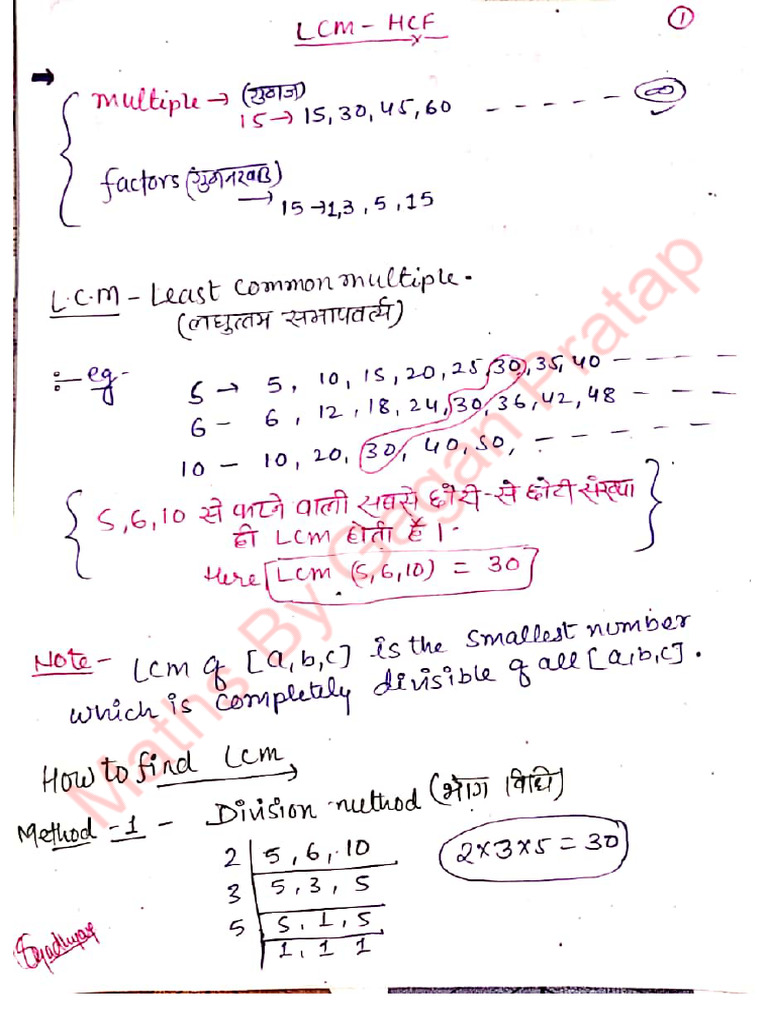 LCM - HCF
1
multiple → (गुणज)
15 → 15, 30, 45, 60 - - - - - ∞
factors (गुणनखण्ड)
→ 15 → 1, 3, 5, 15
L.C.M - Least common multiple.
(लघुत्तम समापवर्त्य)
:- eg -
5 → 5, 10, 15, 20, 25, 30, 35, 40 - - - -
6 - 6, 12, 18, 24, 30, 36, 42, 48 - - - -
10 - 10, 20, 30, 40, 50, - - - - - -
{ 5, 6, 10 से काटने वाली सबसे छोटी-से छोटी संख्या
ही LCM होती है । - }
Here LCM (5, 6, 10) = 30
Note - LCM of [a, b, c] is the smallest number
which is completely divisible of all [a, b, c].
How to find LCM
Method - 1 - Division method (भाग विधि)
2 | 5, 6, 10
3 | 5, 3, 5
5 | 5, 1, 5
| 1, 1, 1
2×3×5 = 30
Maths By Gagan Pratap